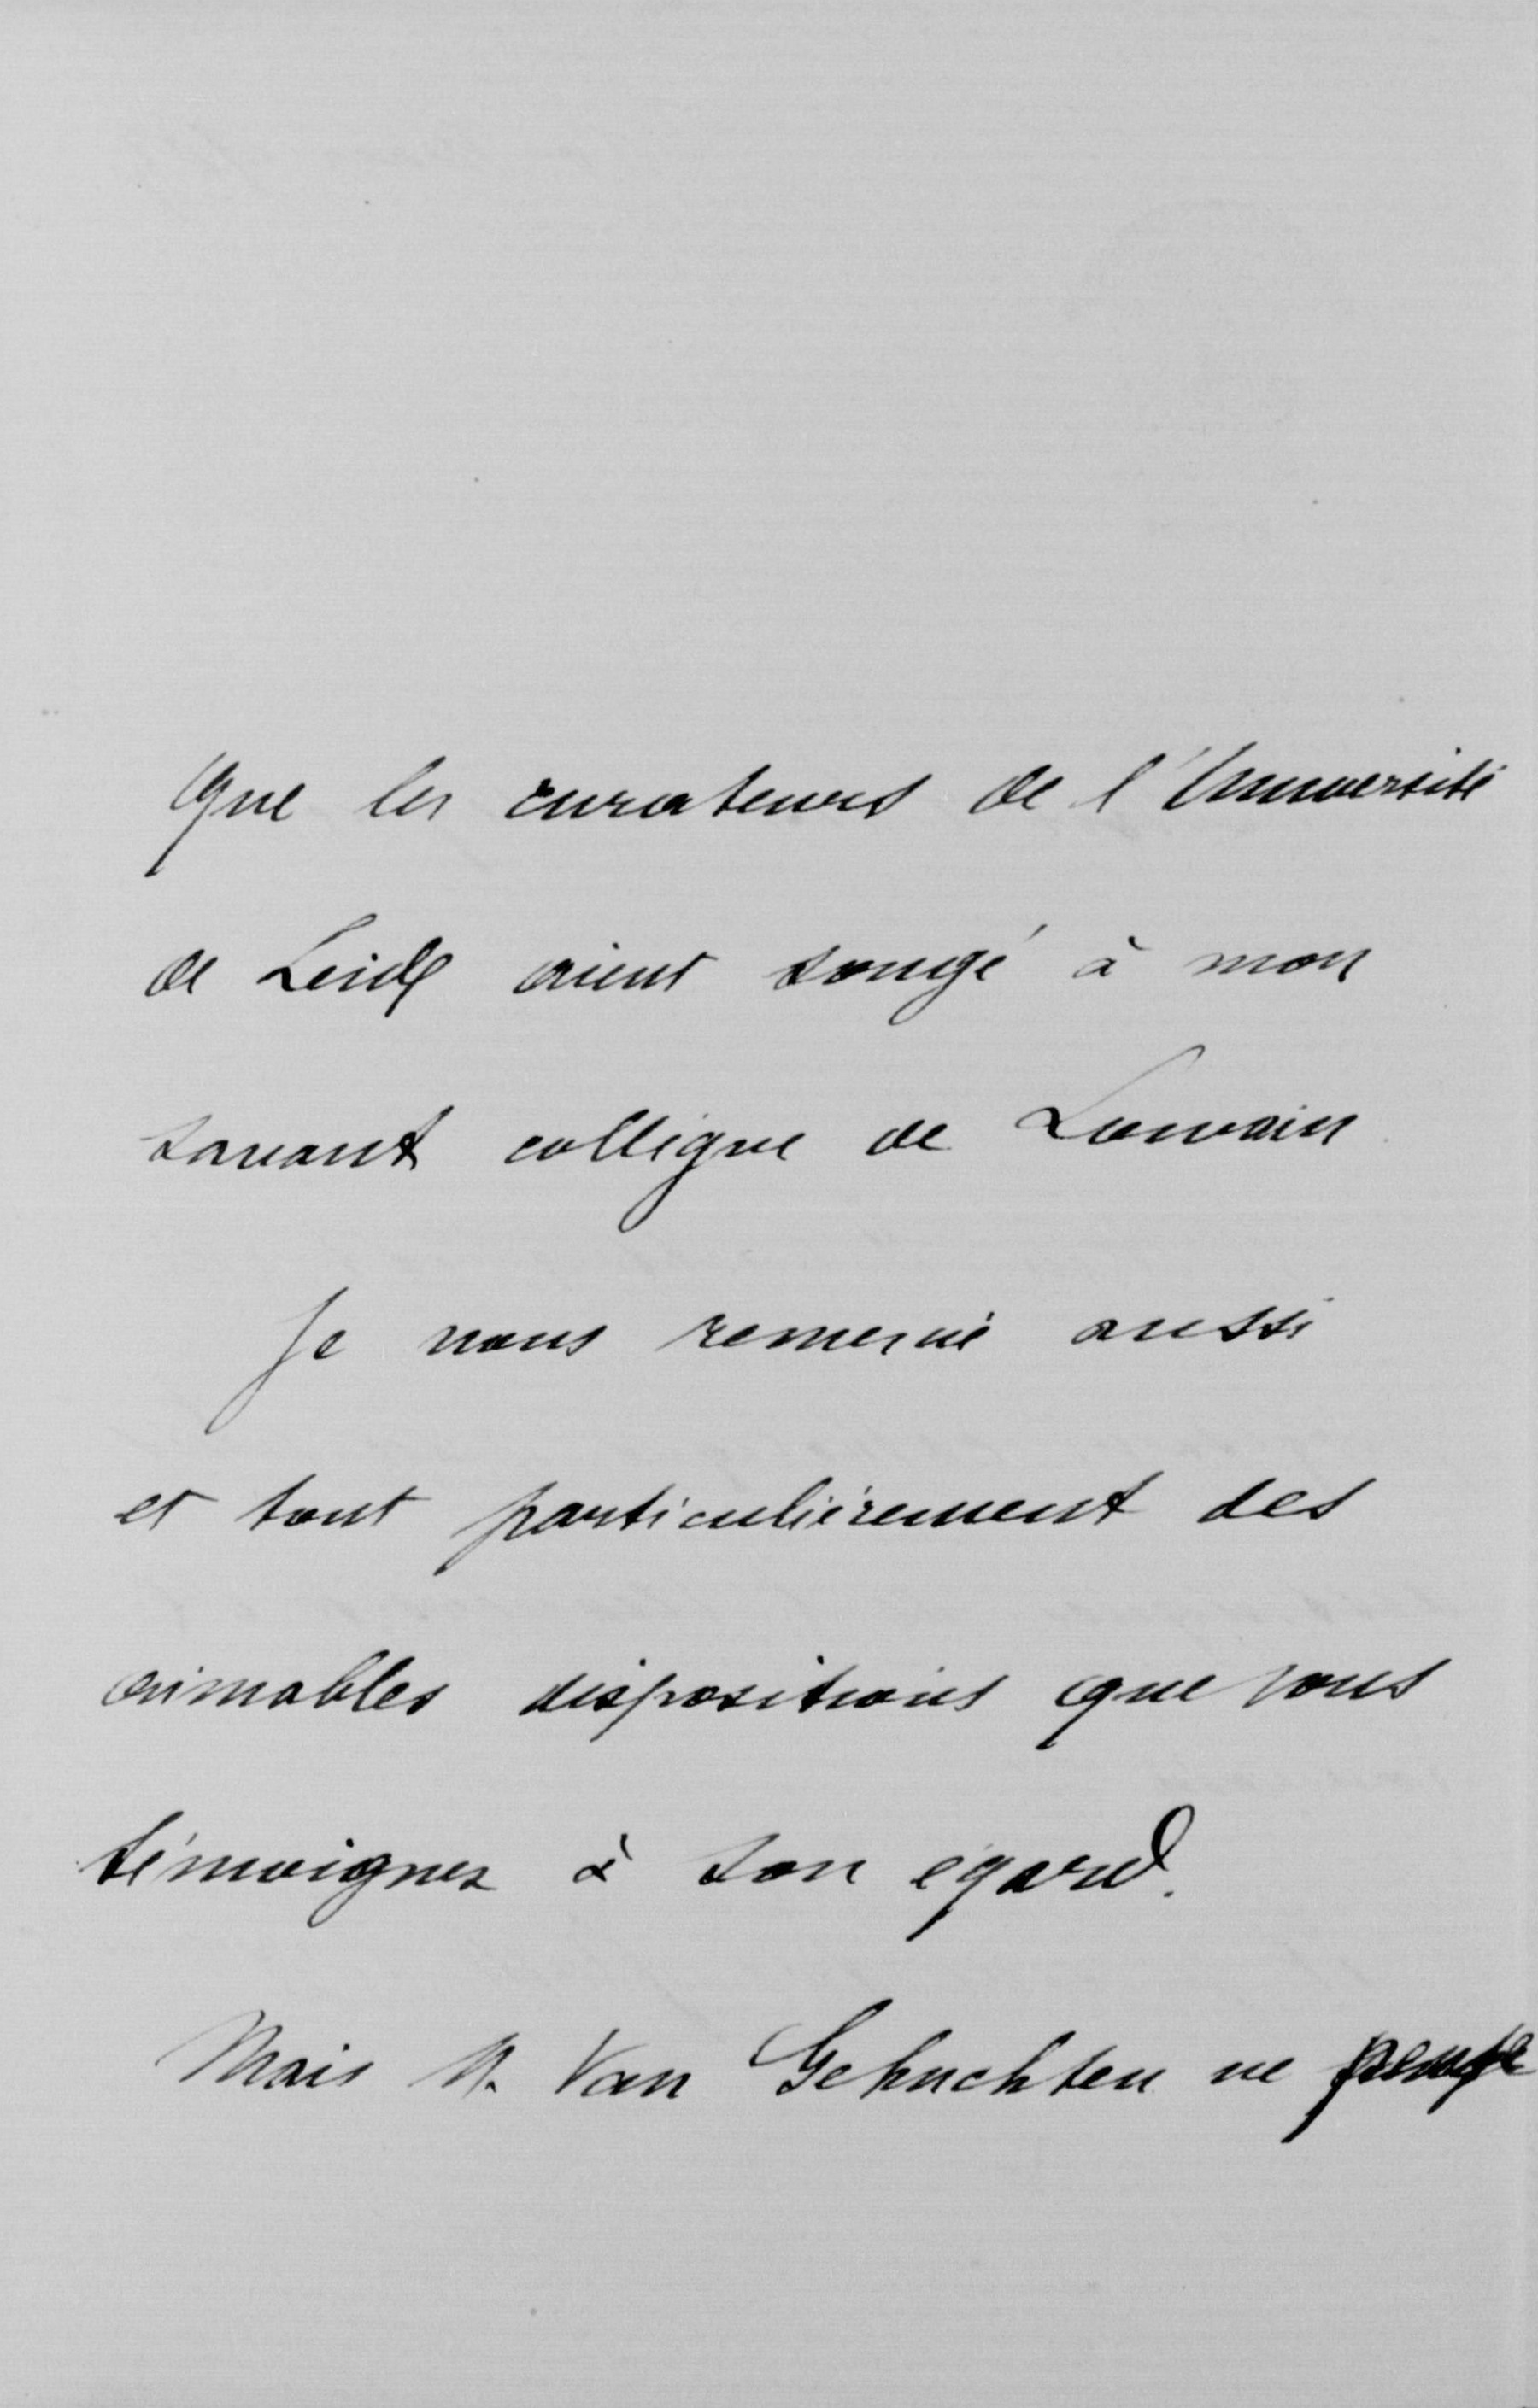 que les curateurs de l'Université
de Leide aient songé à mon
savant collègue de Louvain
Je vous remercie aussi
et tout particulièrement des
aimables dispositions que vous
témoignez à son égard.
Mais M. Van Gehuchten ne pense